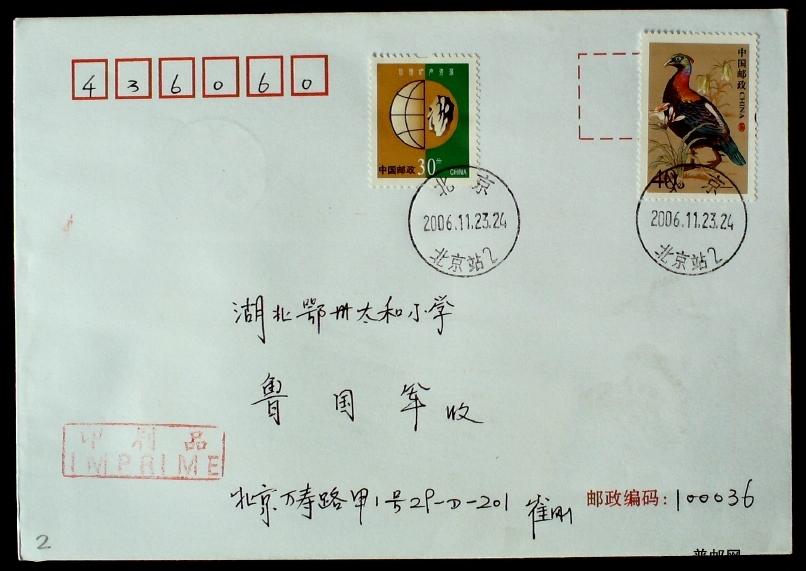 436060
珍惜矿产资源
中国邮政 30分 CHINA
中国邮政 CHINA
北京
2006.11.23.24
北京站2
北京
2006.11.23.24
北京站2
湖北鄂州太和小学
鲁国军 收
印刷品
IMPRIME
北京万寿路甲1号29-D-201 崔刚
邮政编码：100036
2
普邮网